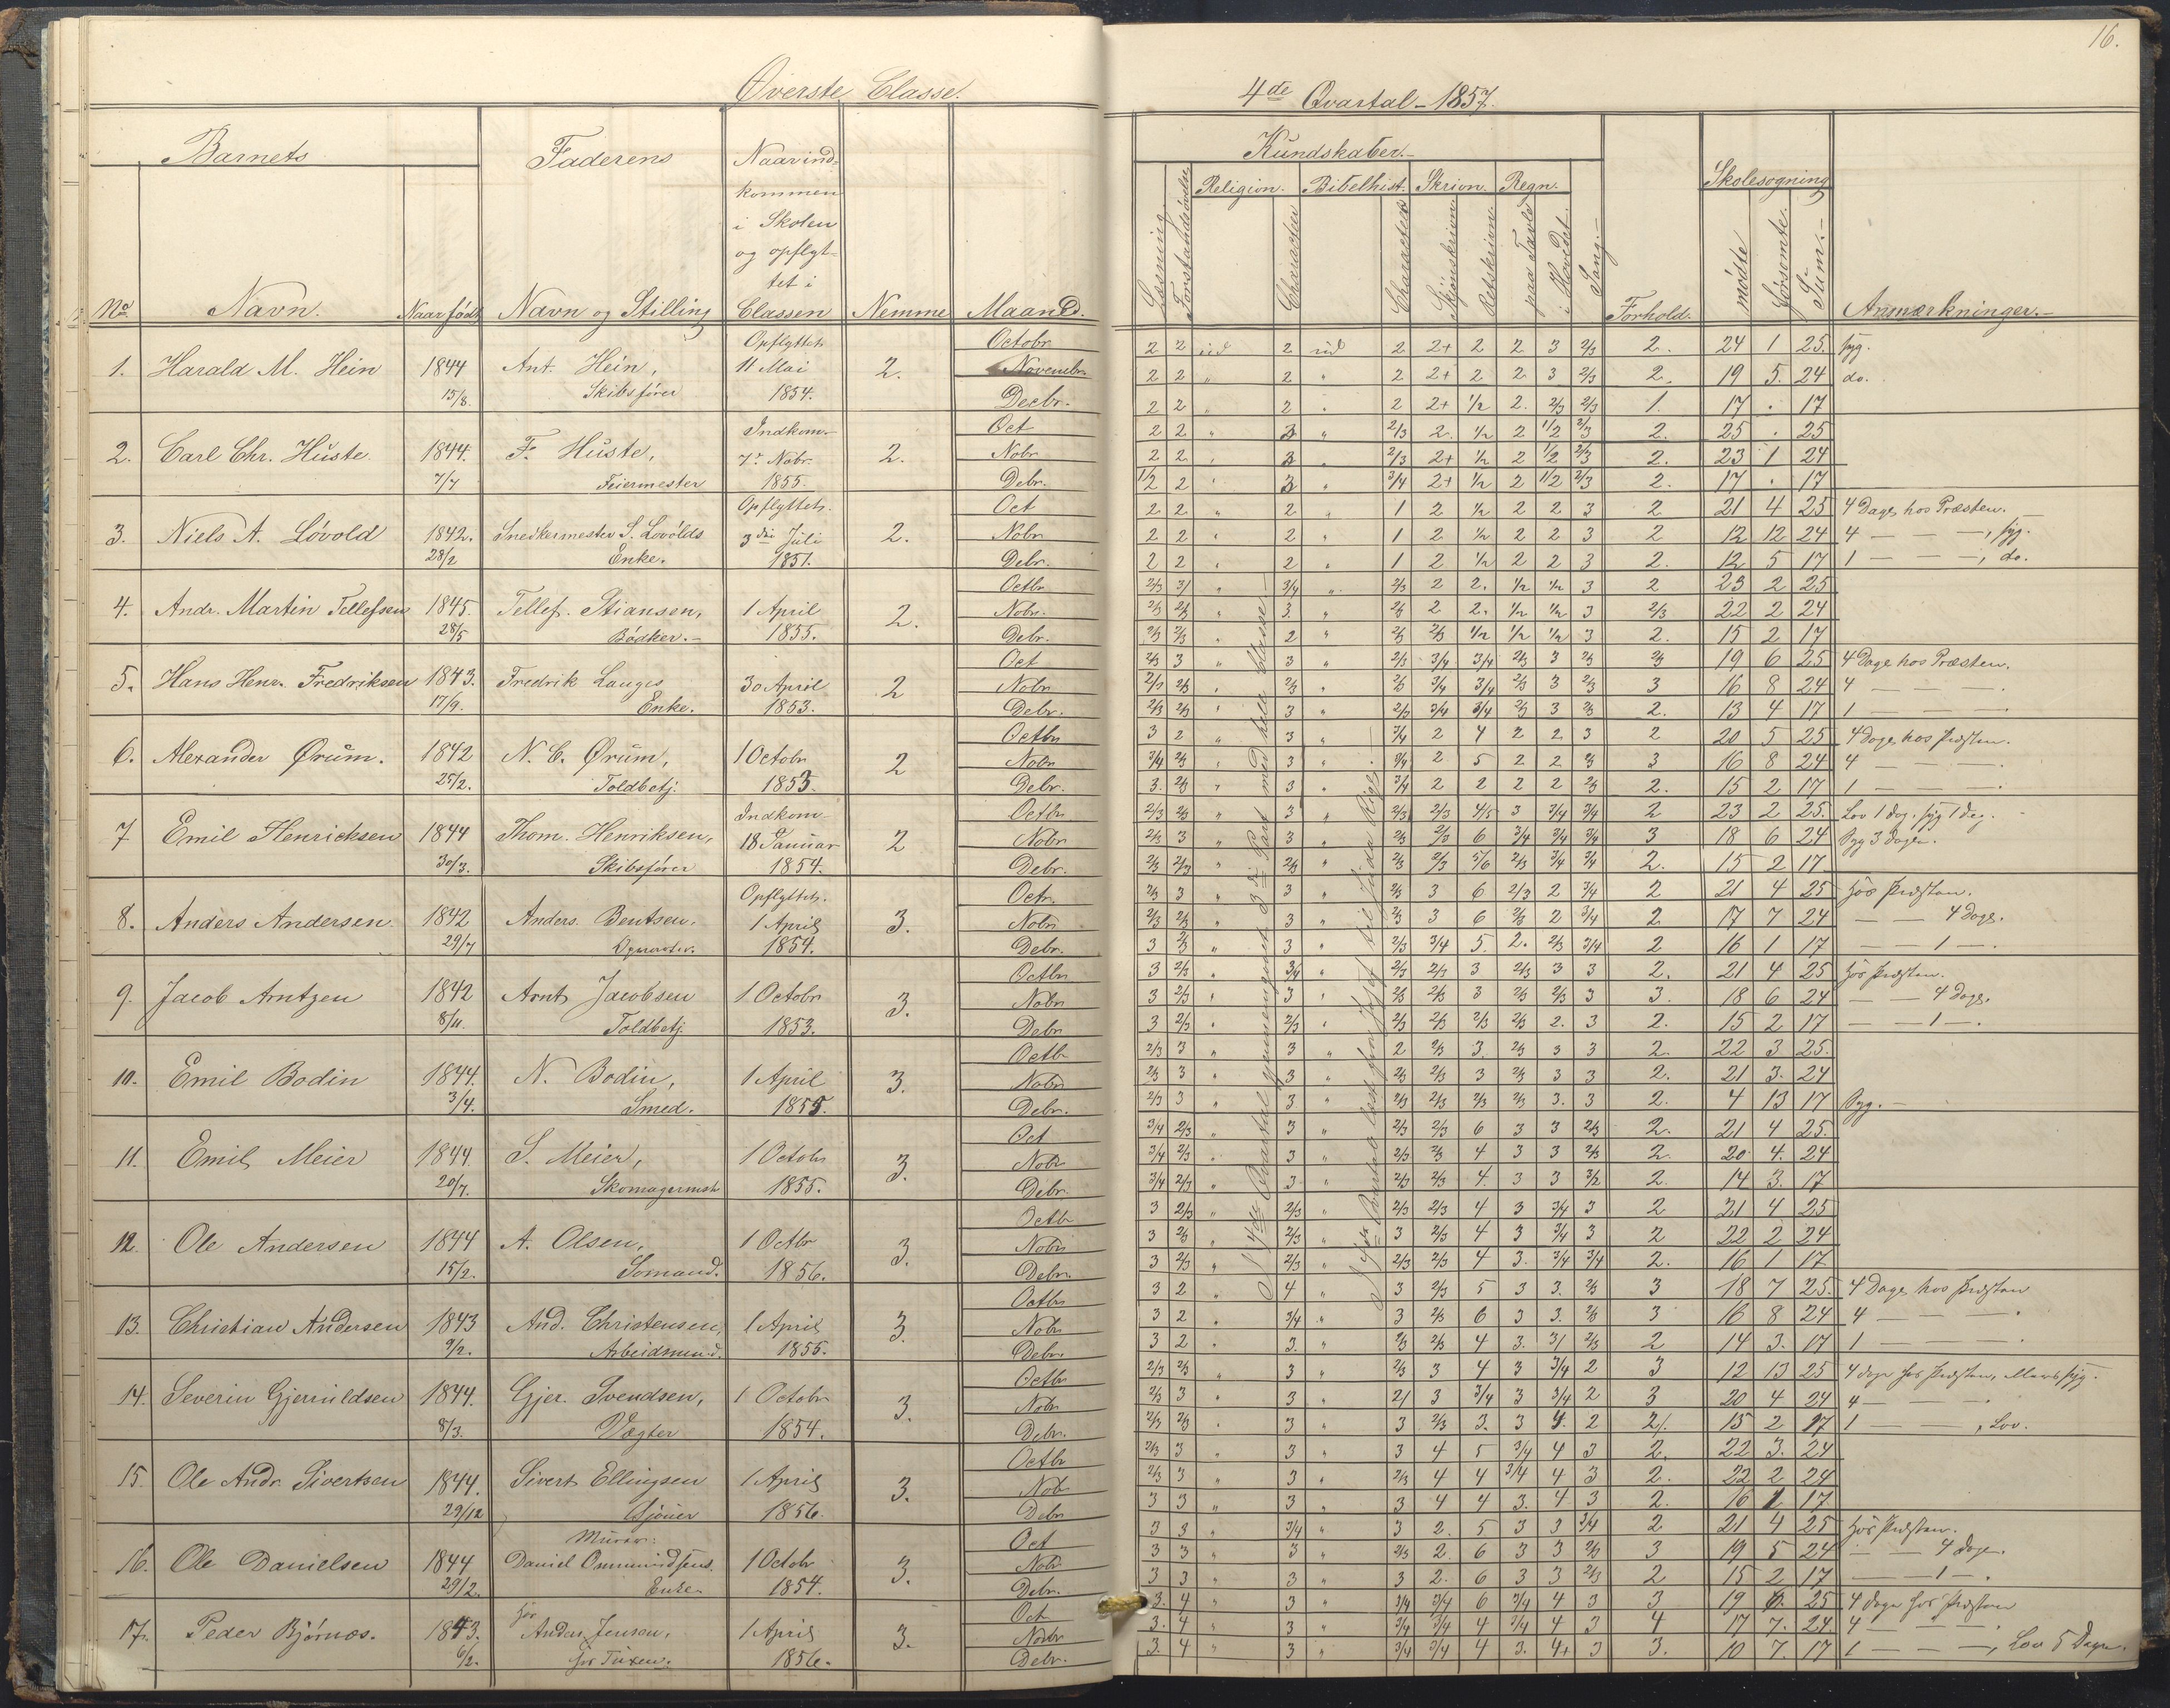 Øverste Classe.
Barnets
Faderens
Naar ind=
kommen
i Skolen
og opflyt=
tet i
Classen
No
Navn.
Naar født
Navn og Stilling
Nemme
Maaned.
1. Harald M. Hein 1844 15/8. Ant. Hein, Skibsfører Opflyttet 11 Mai 1854. 2. Octobr Novembr Decbr.
2. Carl Chr. Huste 1844. 7/7 F. Huste, Feiermester Indkom. 7de Nobr. 1855. 2. Oct Nobr. Debr.
3. Niels A. Lóvold 1842. 28/2 Snedkermester S. Lovólds Enke. Opflyttet. 3die Juli 1851. 2. Oct Nobr Debr.
4. Andr. Martin Tellefsen 1845. 28/5 Tellef. Stiansen, Bódker. 1 April 1855. 2. Octbr Nobr. Debr.
5. Hans Henr. Fredriksen 1843. 17/9. Fredrik Langes Enke. 30 April 1853. 2 Oct Nobr Debr.
6. Alexander Ørum. 1842 25/2. N. C. Ørum, Toldbetj. 1 Octobr 1853. 2 Octbr Nobr Debr.
7 Emil Henricksen 1844 30/3. Thom. Henriksen, Skibsfører Indkom 18 Januar 1854. 2 Octbr Nobr Debr.
8. Anders Andersen 1842 29/7 Anders. Bentsen. Opflyttet. 1 April 1854. 3. Octr. Nobr Debr.
9. Jacob Arntzen 1842 8/11. Arnt Jacobsen Toldbetj. 1 Octobr 1853. 3. Octbr Nobr Debr
10. Emil Bodin 1844. 3/4. N. Bodin, Smed. 1 April 1855. 3. Octbr Nobr Debr.
11. Emil Meier 1844. 20/7. S. Meier, Skomagermst 1 Octobr 1855. 3. Oct Nobr Debr.
12. Ole Andersen 1844 15/2. A. Olsen, Sómand. 1 Octbr 1856. 3. Octbr Nobr Debr.
13. Christian Andersen 1843 9/2. And. Christensen, Arbeidsmand. 1 April 1855. 3. Octbr Nobr Debr
14. Severin Gjeruldsen 1844. 8/3. Gjer. Svendsen, Vægter 1 Octobr 1854. 3. Octbr Nobr Debr.
15. Ole Andr. Sivertsen 1844. 29/12 Sivert Ellingsen 1 April 1856. 3. Octbr Nobr Debr
16. Ole Danielsen 1844 29/2. Murer: Daniel Ommundsens Enke 1 Octobr 1854. 3. Oct Nobr Debr.
17. Peder Bjórnæs. 1843. 6/2. hos Anders Jensen, for Tuxen. 1 April 1856. 3. Oct Nobr Debr.
16.
4de Qvartal 1857.
Kundskaber.
Læsning. Forstandsøvelse Religion. Charakter Bibelhist. Charakter Skrivn. Skjónskrivn. Retskrivn. Regn. paa Tavle i Hovedet. Sang.
Forhold.
Skolesøgning
mødte forsømte. Sum.
Anmærkninger.
2 2 ud 2 ud 2 2+ 2 2 3 2/3 2. 24 1 25. syg.
2 2 " 2 " 2 2+ 2 2 3 2/3 2. 19 5. 24 do.
2 2 " 2 " 2 2+ 1/2 2. 2/3 2/3 1. 17 . 17
2 2 " 3 " 2/3 2. 1/2 2 1/2 2/3 2. 25 . 25
2 2 " 3 " 2/3 2+ 1/2 2 1/2 2/3 2. 23 1 24
1/2 2 " 3 " 3/4 2+ 1/2 2 1/2 2/3 2. 17 . 17
2 2 " 2 " 1 2 1/2 2 2 3 2 21 4 25 4 Dage hos Præsten.
2 2 " 2 " 1 2 1/2 2 2 3 2 12 12 24 4 — — —, syg.
2 2 " 2 " 1 2 1/2 2 2 3 2. 12 5 17 1 — — —, do.
2/3 3/ " 3/4 " 2/3 2 2. 1/2 1/2 3 2 23 2 25
2/3 2/3 " 3. " 2/3 2 2. 1/2 1/2 3 2/3 22 2 24
2/3 2/3 " 2 " 2/3 2/3 1/2 1/2 1/2 3 2. 15 2 17
2/3 3 " 3 " 2/3 3/4 3/4 2/3 3 2/3 2/3 19 6 25 4 Dage hos Præsten.
2/3 2/3 " 2/3 " 2/3 3/4 3/4 2/3 3 2/3 3 16 8 24 4 — — —.
2/3 2/3 " 3 " 2/3 3/4 3/4 2/3 3 2/3 2. 13 4 17 1 — — —
3 2 " 3 " 3/4 2 4 2 2 3 2 20 5 25 4 dage hos Præsten.
3/4 2/3 " 3 " 3/4 2 5 2 2 2/3 3 16 8 24 4 — — —.
3. 2/3 " 3 " 3/4 2 2 2 2 2/3 2. 15 2 17 1 — — —.
2/3 2/3 " 3 " 2/3 2/3 4/5 3 3/4 3/4 2 23 2 25. Lov 1 dag. syg 1 dag.
2/3 3 " 3 " 2/3 2/3 6 3/4 3/4 3/4 3 18 6 24 Syg 3 dage.
2/3 2/3 " 2/3 " 2/3 2/3 5/6 2/3 3/4 3/4 2. 15 2 17
2/3 3 " 3 " 2/3 3 6 2/3 2 3/4 2 21 4 25 hos Præsten.
2/3 2/3 " 3 " 2/3 3 6 2/3 2 3/4 2 17 7 24 — — 4 dage.
3 2/3 " 3 " 2/3 3/4 5. 2. 2/3 3/4 2 16 1 17 — — 1 —.
3 2/3 " 3/4 " 2/3 2/3 3 2/3 3 3 2. 21 4 25 hos Præsten.
3 2/3 " 3 " 2/3 2/3 3 2/3 2/3 3 3. 18 6 24 — — 4 dage.
3 2/3 " 2/3 " 2/3 2/3 2/3 2/3 2. 3 2. 15 2 17 — — 1 —.
2/3 3 " 3 " 2 2/3 3. 2/3 3 3 2. 22 3 25.
2/3 3 " 3 " 2/3 2/3 3 2/3 3 3 2. 21 3. 24
2/3 3 " 3 " 2/3 2/3 2/3 2/3 3. 3 2. 4 13 17 Syg.
3/4 2/3 " 3 " 2/3 2/3 6 3 3 2/3 2. 21 4 25.
3/4 2/3 " 3 " 2/3 2/3 4 3 3 2/3 2. 20 4. 24
3/4 2/3 " 3 " 2/3 2/3 4. 3 3 3/2 2. 14 3. 17
3 2/3 " 2/3 " 2/3 2/3 4 3 3/4 3 2 21 4 25
3 2/3 " 2/3 " 3 2/3 4 3 3/4 3 2 22 2 24
3 2/3 " 2/3 " 2/3 2/3 4 3. 3/4 3/4 2. 16 1 17
3 2 " 4 " 3 2/3 5 3 3. 2/3 3 18 7 25. 4 Dage hos Præsten
3 2 " 3/4 " 3 2/3 6 3 3. 2/3 3 16 8 24 4 — — —.
3 2 " 3. " 2/3 2/3 4 3. 3/ 2/3 2 14 3. 17 1 — — —.
2/3 2/3 " 3 " 2/3 3 4 3 3/4 2 3 12 13 25 4 dage hos Præsten, syg.
2/3 3 " 3 " 2/ 3 3/4 3 3/4 2 3 20 4 24 4 — — —.
2/3 2/3 " 3 " 3 2/3 3. 3 4. 2 2/. 15 2 17 1 — — —, Lov.
2/3 3 " 3 " 3 4 5 3/4 4 3 2. 22 3. 24
2/3 3 " 3 " 2/3 4 4 3/4 4 3 2. 22 2 24
3 3 " 3 " 3 4 4 3. 4 3 2. 16 1 17
3 3 " 3/4 " 3 2. 5. 3 3 3/4 2 21 4 25 hos Præsten.
3 3 " 3 " 2/3 2. 6 3 3 2/3 3 19 5 24 — — 4 dage.
3 3 " 3 " 3 2. 6 3 3 2/3 2 15 2 17 — — 1 —.
3. 4 " 3 " 3/4 3/4 6 3/4 4 3 3 19 6. 25 4 dage hos Præsten
3. 4 " 3 " 3/4 3/4 4 3/4 4 3 4 17 7. 24. 4 — — —.
3. 4 " 3 " 3/4 3/4 4 3. 4+ 3 3. 10 7. 17 1 — — —, Lov 5 Dage.
I 4de Qvartal gjennemgaaet 3die Part med hele Classen
I 4de Qvartal læst fra til Juda Rige